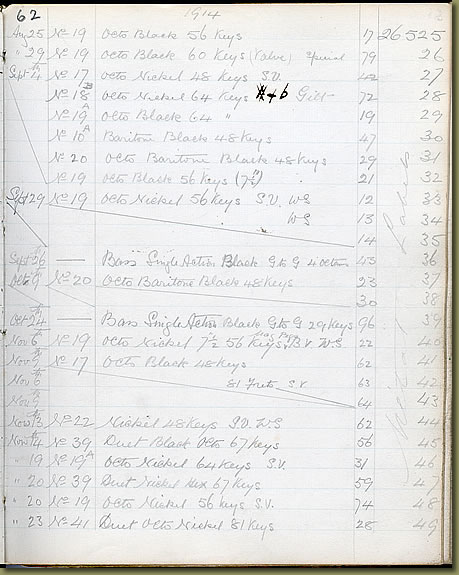 62 1914
Aug 25 No 19 Octo Black 56 Keys 17 26525
" 29 No 19 Octo Black 60 Keys (Valve) Special 79 26
Sept 4 No 17 Octo Nickel 48 Keys S.V. 27
No 18 Octo Nickel 64 Keys Gilt 72 28
No 19A Octo Black 64 " 19 29
No 10A Baritone Black 48 Keys 47 30
No 20 Octo Baritone Black 48 Keys 29 31
No 19 Octo Black 56 Keys 21 32
Sept 29 No 19 Octo Nickel 56 Keys S.V. WS 12 33
WS 13 34
14 35
Sept 26 — Bass Single Action Black G to G 4 octaves 36
Octo 9 No 20 Octo Baritone Black 48 Keys 23 37
30 38
Oct 24 — Bass Single Action Black G to G 29 Keys 96 39
Nov 6 No 19 Octo Nickel 7½ 56 Keys S.V. WS 22 40
Nov No 17 Octo Black 48 Keys 62 41
Nov 6 S.V 63 42
Nov 64 43
Nov 13 No 22 Nickel 48 Keys S.V. WS 62 44
Nov 14 No 39 Duet Black Octo 67 Keys 56 45
" 19 No 19A Octo Nickel 64 Keys S.V. 31 46
" 20 No 39 Duet Nickel Hex 67 Keys 59 47
" 20 No 19 Octo Nickel 56 Keys S.V. 74 48
" 23 No 41 Duet Octo Nickel 81 Keys 28 49
Labels